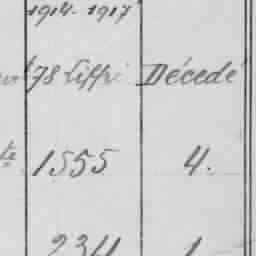 1914-1917
78 Liffré Décedé
te 1555 4.
234 1